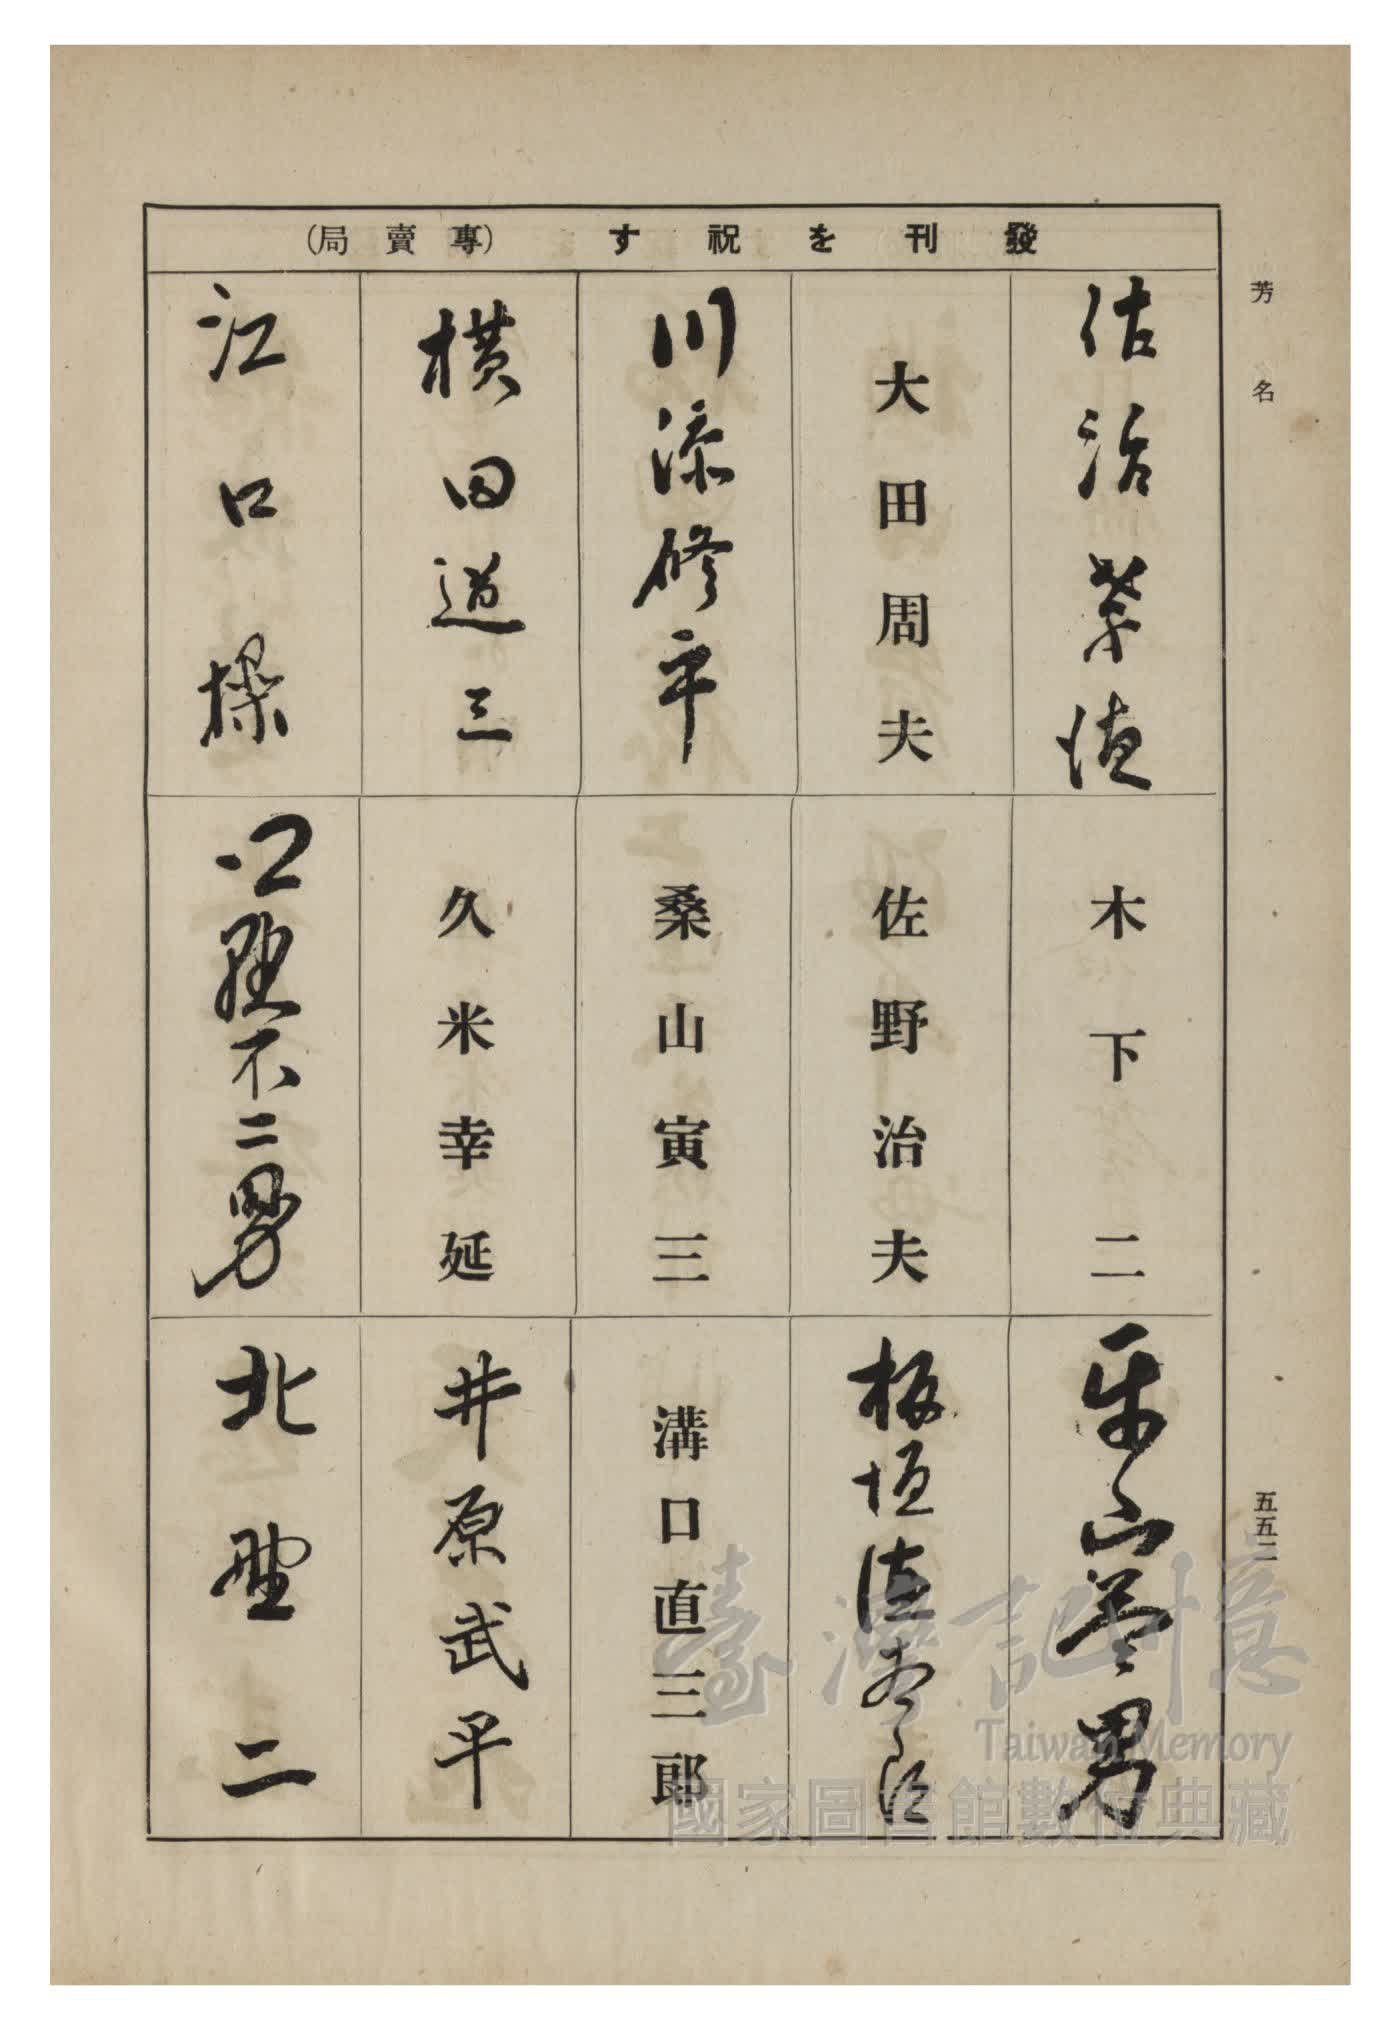 發刊を祝す (專賣局)
芳名
佐治孝徳
大田周夫
川添修平
横田道三
江口操
木下二
佐野治夫
桑山寅三
久米幸延
口野不二男
山峯男
板垣徳太郎
溝口直三郎
井原武平
北野二
五五二
臺灣記憶
Taiwan Memory
國家圖書館數位典藏